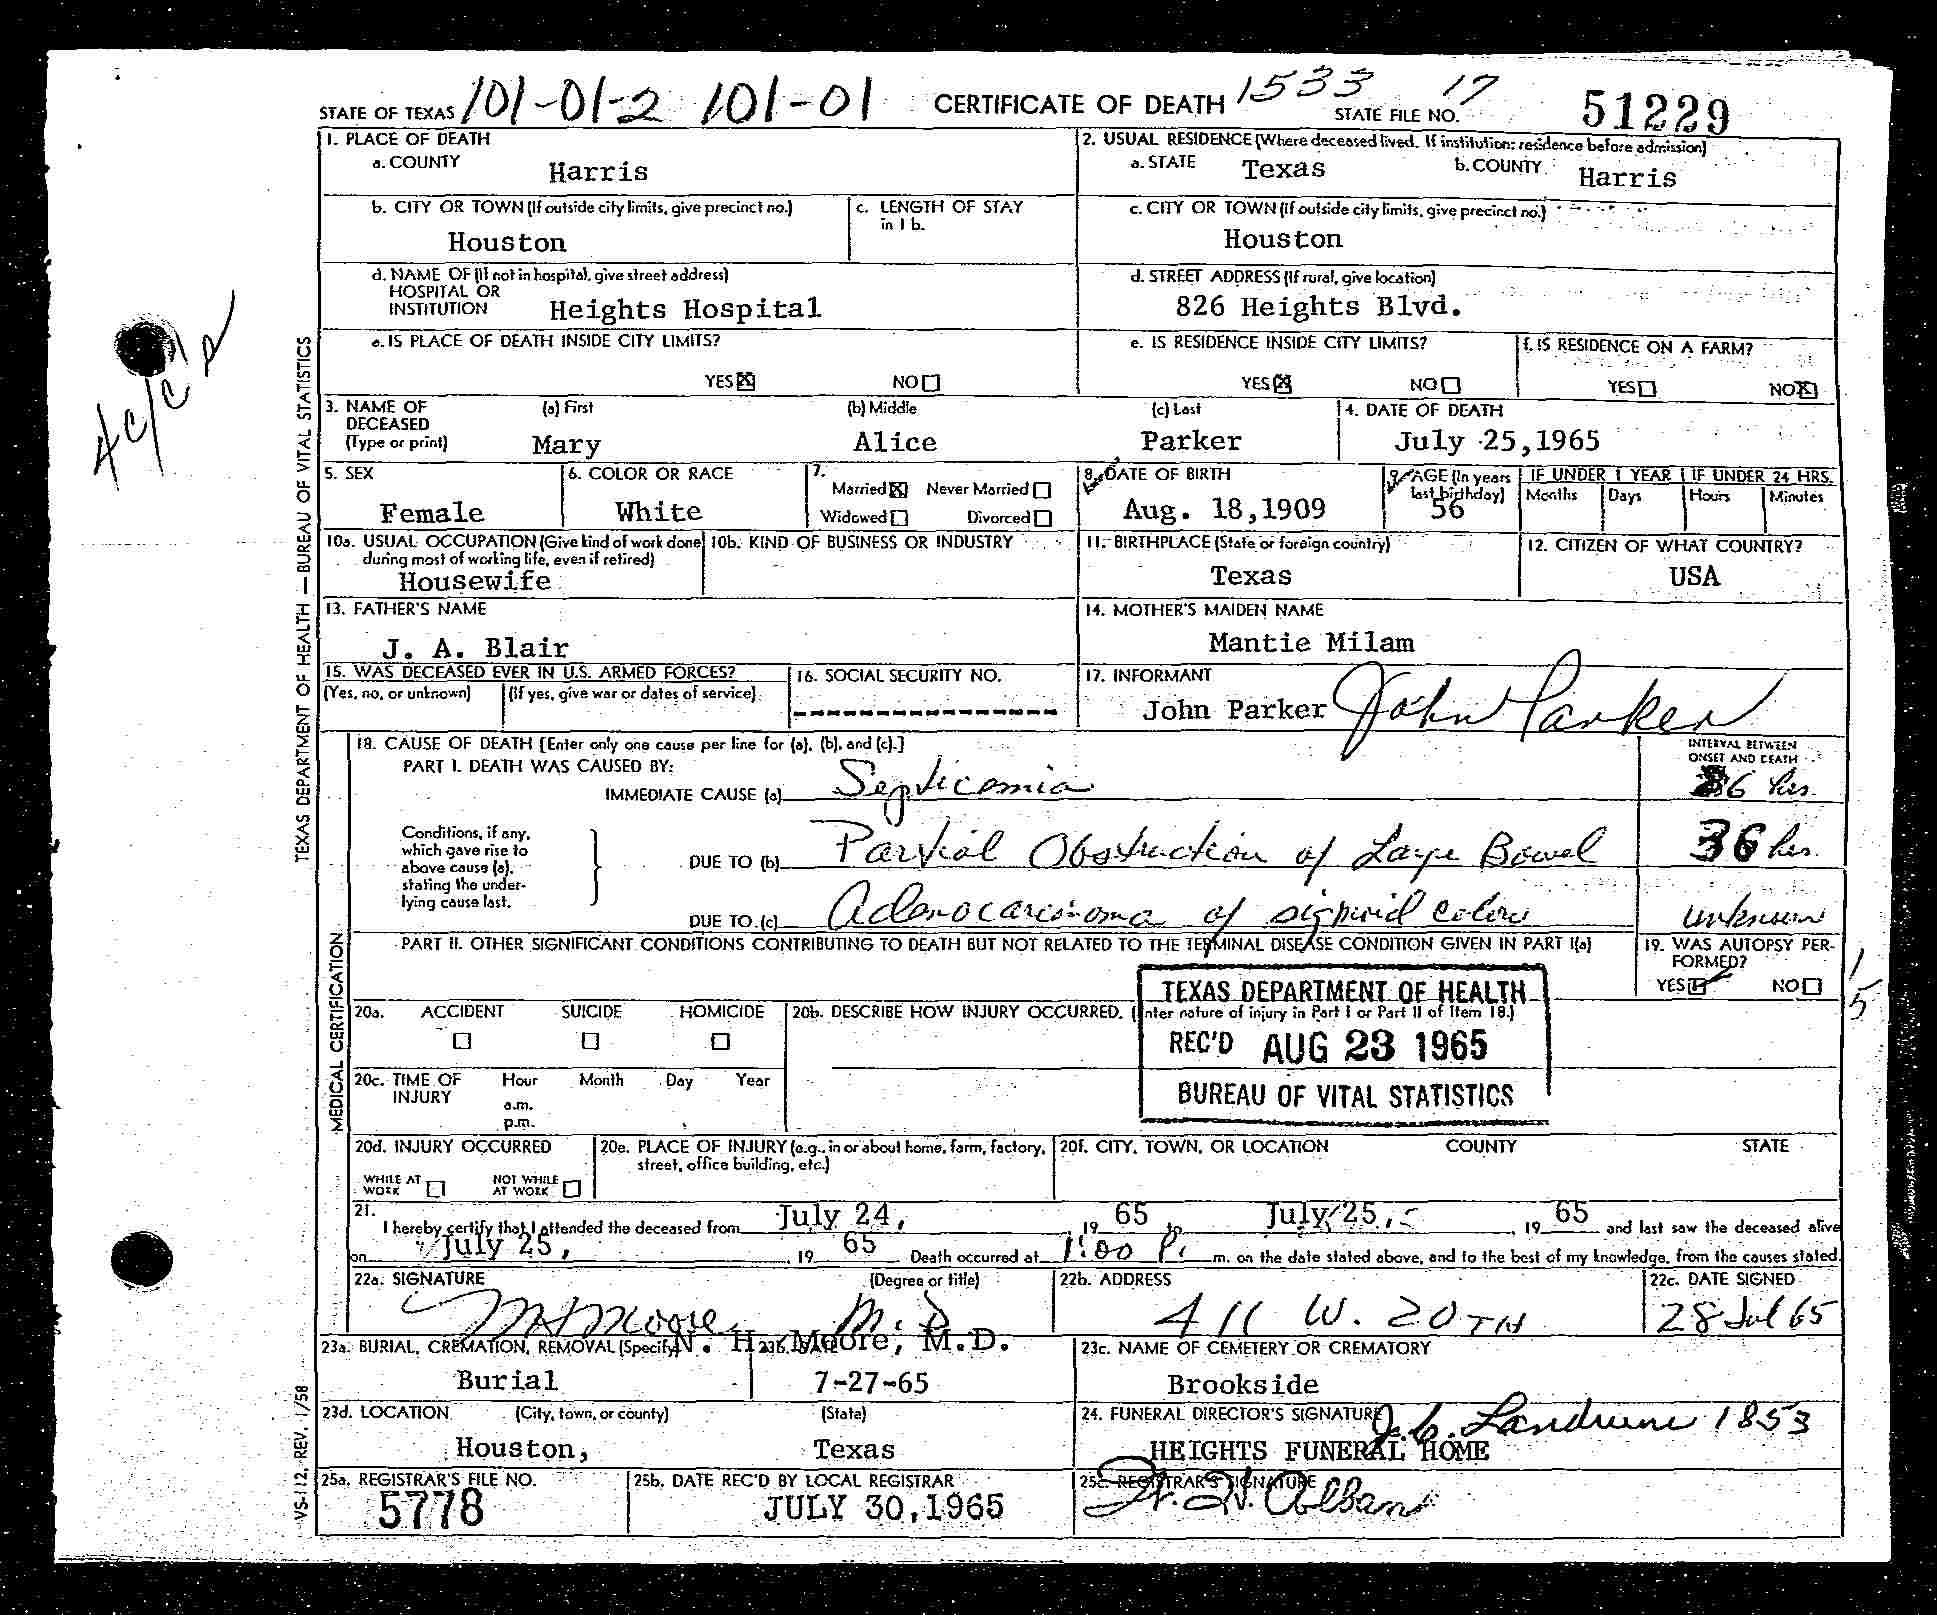 STATE OF TEXAS 101-01-2 101-01 CERTIFICATE OF DEATH 1533 STATE FILE NO. 17 51229
1. PLACE OF DEATH
a. COUNTY Harris
2. USUAL RESIDENCE (Where deceased lived. If institution: residence before admission)
a. STATE Texas b. COUNTY Harris
b. CITY OR TOWN (If outside city limits, give precinct no.) Houston
c. LENGTH OF STAY in 1 b.
c. CITY OR TOWN (If outside city limits, give precinct no.) Houston
d. NAME OF (If not in hospital, give street address)
HOSPITAL OR
INSTITUTION Heights Hospital
d. STREET ADDRESS (If rural, give location)
826 Heights Blvd.
e. IS PLACE OF DEATH INSIDE CITY LIMITS?
YES NO
e. IS RESIDENCE INSIDE CITY LIMITS?
YES NO
f. IS RESIDENCE ON A FARM?
YES NO
3. NAME OF DECEASED (Type or print)
(a) First Mary
(b) Middle Alice
(c) Last Parker
4. DATE OF DEATH
July 25,1965
5. SEX
Female
6. COLOR OR RACE
White
7. Married Never Married
Widowed Divorced
8. DATE OF BIRTH
Aug. 18,1909
9. AGE (In years last birthday)
56
IF UNDER 1 YEAR
Months Days
IF UNDER 24 HRS.
Hours Minutes
10a. USUAL OCCUPATION (Give kind of work done during most of working life, even if retired)
Housewife
10b. KIND OF BUSINESS OR INDUSTRY
11. BIRTHPLACE (State or foreign country)
Texas
12. CITIZEN OF WHAT COUNTRY?
USA
13. FATHER'S NAME
J. A. Blair
14. MOTHER'S MAIDEN NAME
Mantie Milam
15. WAS DECEASED EVER IN U.S. ARMED FORCES?
(Yes, no, or unknown) (If yes, give war or dates of service)
16. SOCIAL SECURITY NO.
----------------
17. INFORMANT
John Parker John Parker
18. CAUSE OF DEATH [Enter only one cause per line for (a), (b), and (c).]
INTERVAL BETWEEN ONSET AND DEATH
PART I. DEATH WAS CAUSED BY:
IMMEDIATE CAUSE (a) Septicemia 36 hrs.
Conditions, if any, which gave rise to above cause (a), stating the underlying cause last.
DUE TO (b) Partial Obstruction of Large Bowel 36 hrs.
DUE TO (c) Adenocarcinoma of sigmoid colon unknown
PART II. OTHER SIGNIFICANT CONDITIONS CONTRIBUTING TO DEATH BUT NOT RELATED TO THE TERMINAL DISEASE CONDITION GIVEN IN PART I(a)
19. WAS AUTOPSY PERFORMED?
YES NO
1
5
TEXAS DEPARTMENT OF HEALTH
REC'D AUG 23 1965
BUREAU OF VITAL STATISTICS
20a. ACCIDENT SUICIDE HOMICIDE
20b. DESCRIBE HOW INJURY OCCURRED. (Enter nature of injury in Part I or Part II of Item 18.)
20c. TIME OF INJURY
Hour Month Day Year
a.m.
p.m.
20d. INJURY OCCURRED
WHILE AT WORK NOT WHILE AT WORK
20e. PLACE OF INJURY (e.g., in or about home, farm, factory, street, office building, etc.)
20f. CITY, TOWN, OR LOCATION COUNTY STATE
21. I hereby certify that I attended the deceased from July 24, 19 65 to July 25, 19 65 and last saw the deceased alive
on July 25, 19 65 Death occurred at 1:00 P. m. on the date stated above, and to the best of my knowledge, from the causes stated.
22a. SIGNATURE (Degree or title)
NHMoore M.D.
N. H. Moore, M.D.
22b. ADDRESS
411 W. 20TH
22c. DATE SIGNED
28 Jul 65
23a. BURIAL, CREMATION, REMOVAL (Specify)
Burial
23b. DATE
7-27-65
23c. NAME OF CEMETERY OR CREMATORY
Brookside
23d. LOCATION (City, town, or county) (State)
Houston, Texas
24. FUNERAL DIRECTOR'S SIGNATURE
J. C. Landrum 1853
HEIGHTS FUNERAL HOME
25a. REGISTRAR'S FILE NO.
5778
25b. DATE REC'D BY LOCAL REGISTRAR
JULY 30,1965
25c. REGISTRAR'S SIGNATURE
TEXAS DEPARTMENT OF HEALTH — BUREAU OF VITAL STATISTICS
MEDICAL CERTIFICATION
VS-112, REV. 1/58